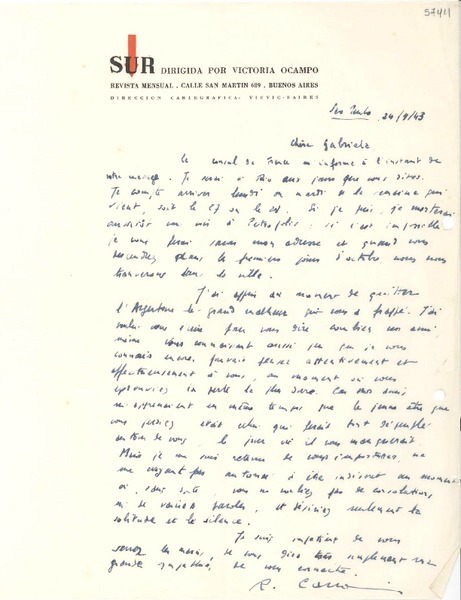 5744
SUR DIRIGIDA POR VICTORIA OCAMPO
REVISTA MENSUAL . CALLE SAN MARTIN 689 . BUENOS AIRES
DIRECCION CABLEGRAFICA: VICVIC-BAIRES
24/9/43
Chère Gabriela
Le consul de France m'informe à l'instant de
votre message. Je serai à Rio aux jours que vous dites.
Je compte arriver lundi ou mardi de la semaine qui
vient, soit le 27 ou le 28. Si je puis, je monterai
aussitôt vous voir à Petropolis; si c'est impossible
je vous ferai savoir mon adresse et quand vous
descendrez dans les premiers jours d'octobre nous nous
trouverons dans la ville.
J'ai appris au moment de quitter
l'Argentine le grand malheur qui vous a frappé. J'ai
voulu vous écrire pour vous dire combien vos amis
même vous connaissant aussi peu que je vous
connais encore, pensaient attentivement et
affectueusement à vous, au moment où vous
éprouviez la perte la plus dure. Car vos amis
m'apprenaient en même temps que le jeune être que
vous perdiez était celui qui ferait tout dépeuplé
autour de vous, le jour où il vous manquerait.
Mais je me suis retenu de vous importuner, ne
me croyant pas autorisé à être indiscret au moment
où, sans doute, vous ne vouliez pas de consolations,
ni de vaines paroles, et désiriez seulement la
solitude et le silence.
Je suis impatient de vous
serrer les mains, de vous dire tout simplement ma
grande sympathie, de vous connaître
R. Caillois